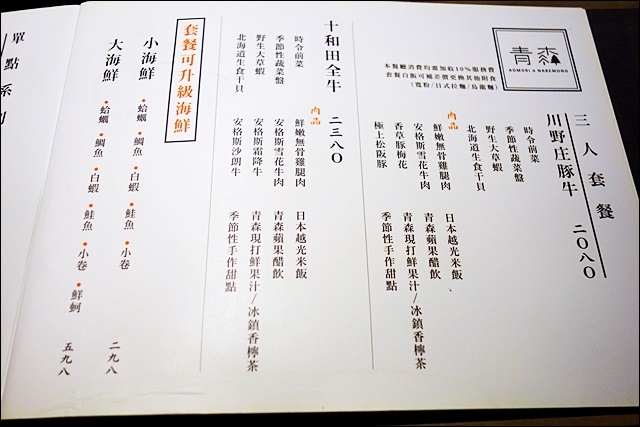 青森
AOMORI & NABEMONO
本餐廳消費均需加收10%服務費
套餐白飯可補差價更換其他附食
(寬粉/日式拉麵/烏龍麵)
三人套餐
川野庄豚牛 二〇八〇
時令前菜
季節性蔬菜盤
野生大草蝦
北海道生食干貝
肉品
鮮嫩無骨雞腿肉
安格斯雪花牛肉
香草豚梅花
極上松阪豚
日本越光米飯
青森蘋果醋飲
青森現打鮮果汁/冰鎮香檸茶
季節性手作甜點
十和田全牛 二三八〇
時令前菜
季節性蔬菜盤
野生大草蝦
北海道生食干貝
肉品
鮮嫩無骨雞腿肉
安格斯雪花牛肉
安格斯霜降牛
安格斯沙朗牛
日本越光米飯
青森蘋果醋飲
青森現打鮮果汁/冰鎮香檸茶
季節性手作甜點
套餐可升級海鮮
小海鮮 • 蛤蠣 • 鯛魚 • 白蝦 • 鮭魚 • 小卷 二九八
大海鮮 • 蛤蠣 • 鯛魚 • 白蝦 • 鮭魚 • 小卷 • 鮮蚵 五九八
單點系列